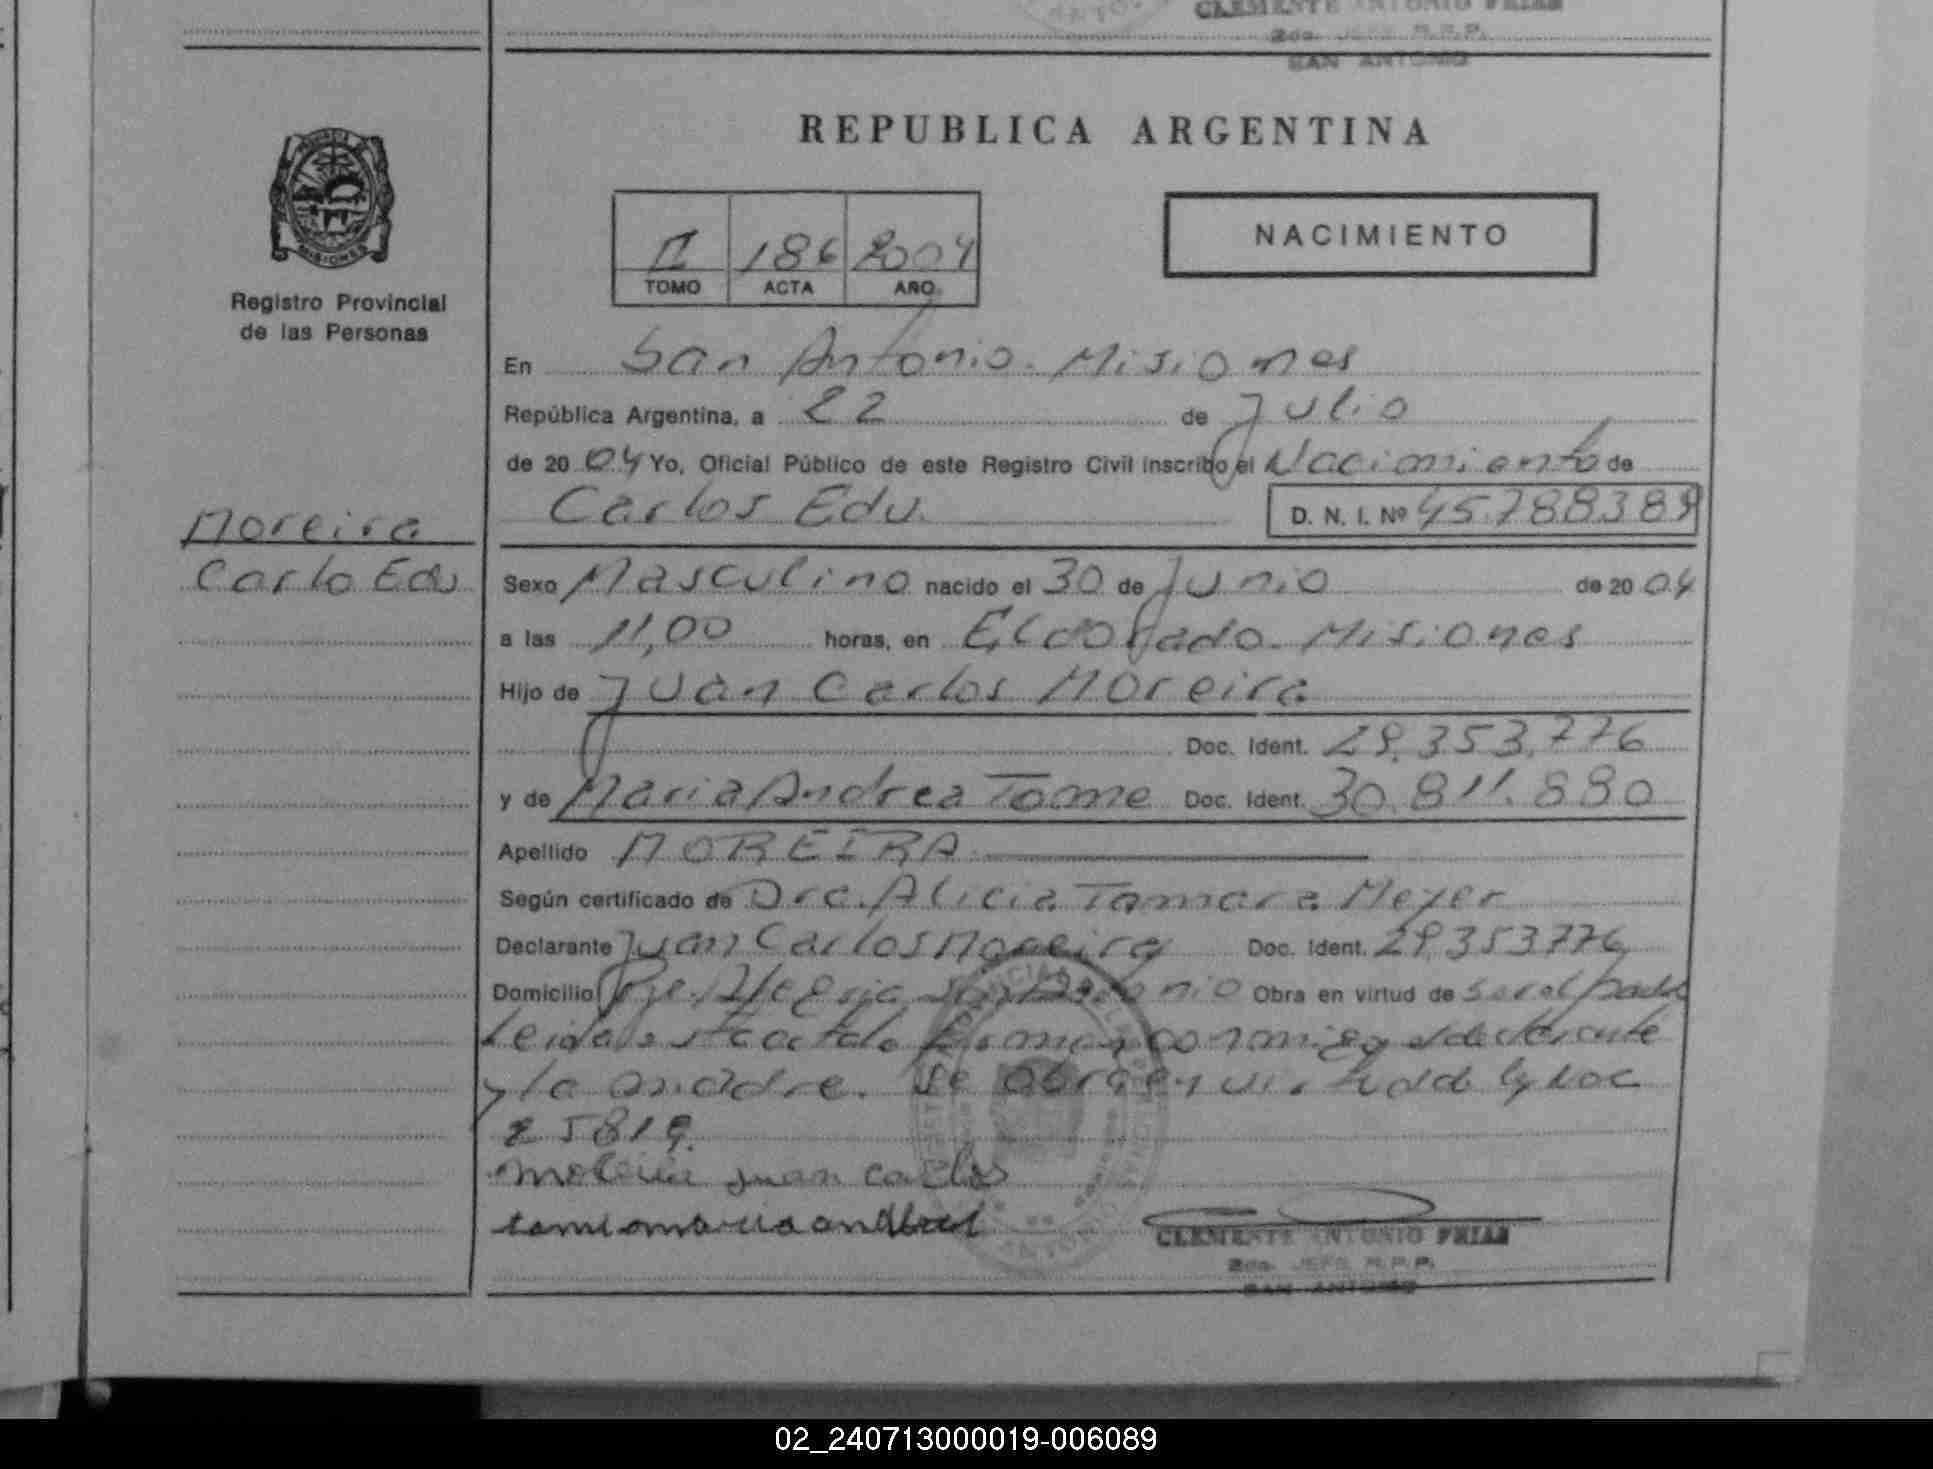 CLEMENTE ANTONIO FRIAS
2do. JEFE R.P.P.
SAN ANTONIO
REPUBLICA ARGENTINA
MISIONES
Registro Provincial
de las Personas
II 186 2004
TOMO ACTA AÑO
NACIMIENTO
En San Antonio. Misiones
República Argentina, a 22 de Julio
de 2004 Yo, Oficial Público de este Registro Civil inscribo el Nacimiento de
Carlos Edu. D. N. I. Nº 45.788.389
Moreira
Carlo Edu
Sexo Masculino nacido el 30 de Junio de 2004
a las 11,00 horas, en Eldorado. Misiones
Hijo de Juan Carlos Moreira
Doc. Ident. 29.353.776
y de Maria Andrea Tome Doc. Ident. 30.811.880
Apellido MOREIRA
Según certificado de Dra. Alicia Tamara Meyer
Declarante Juan Carlos Moreira Doc. Ident. 29.353776
Domicilio San Antonio Obra en virtud de ser el padre
Leida esta acta la firman conmigo el declarante
y la madre. Se obra en virtud
25819.
Moreira Juan Carlos
tome maria andrea
CLEMENTE ANTONIO FRIAS
2do. JEFE R.P.P.
SAN ANTONIO
02_240713000019-006089